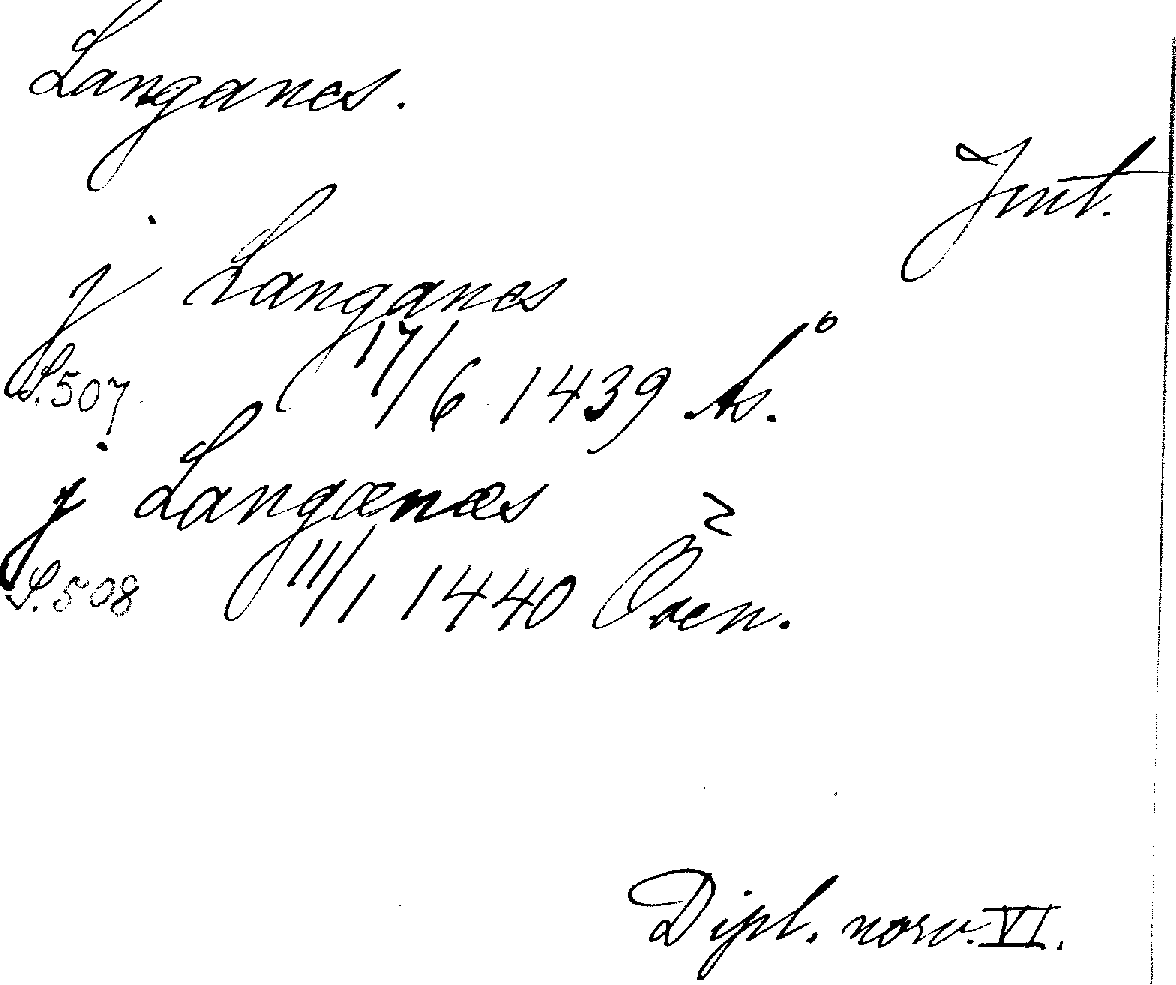 Langanes.
Jmt.
j Langanes
S. 507. 17/6 1439 Ås.
j Langænæs
S. 508 11/1 1440 Oven.
Dipl. norv. VI.